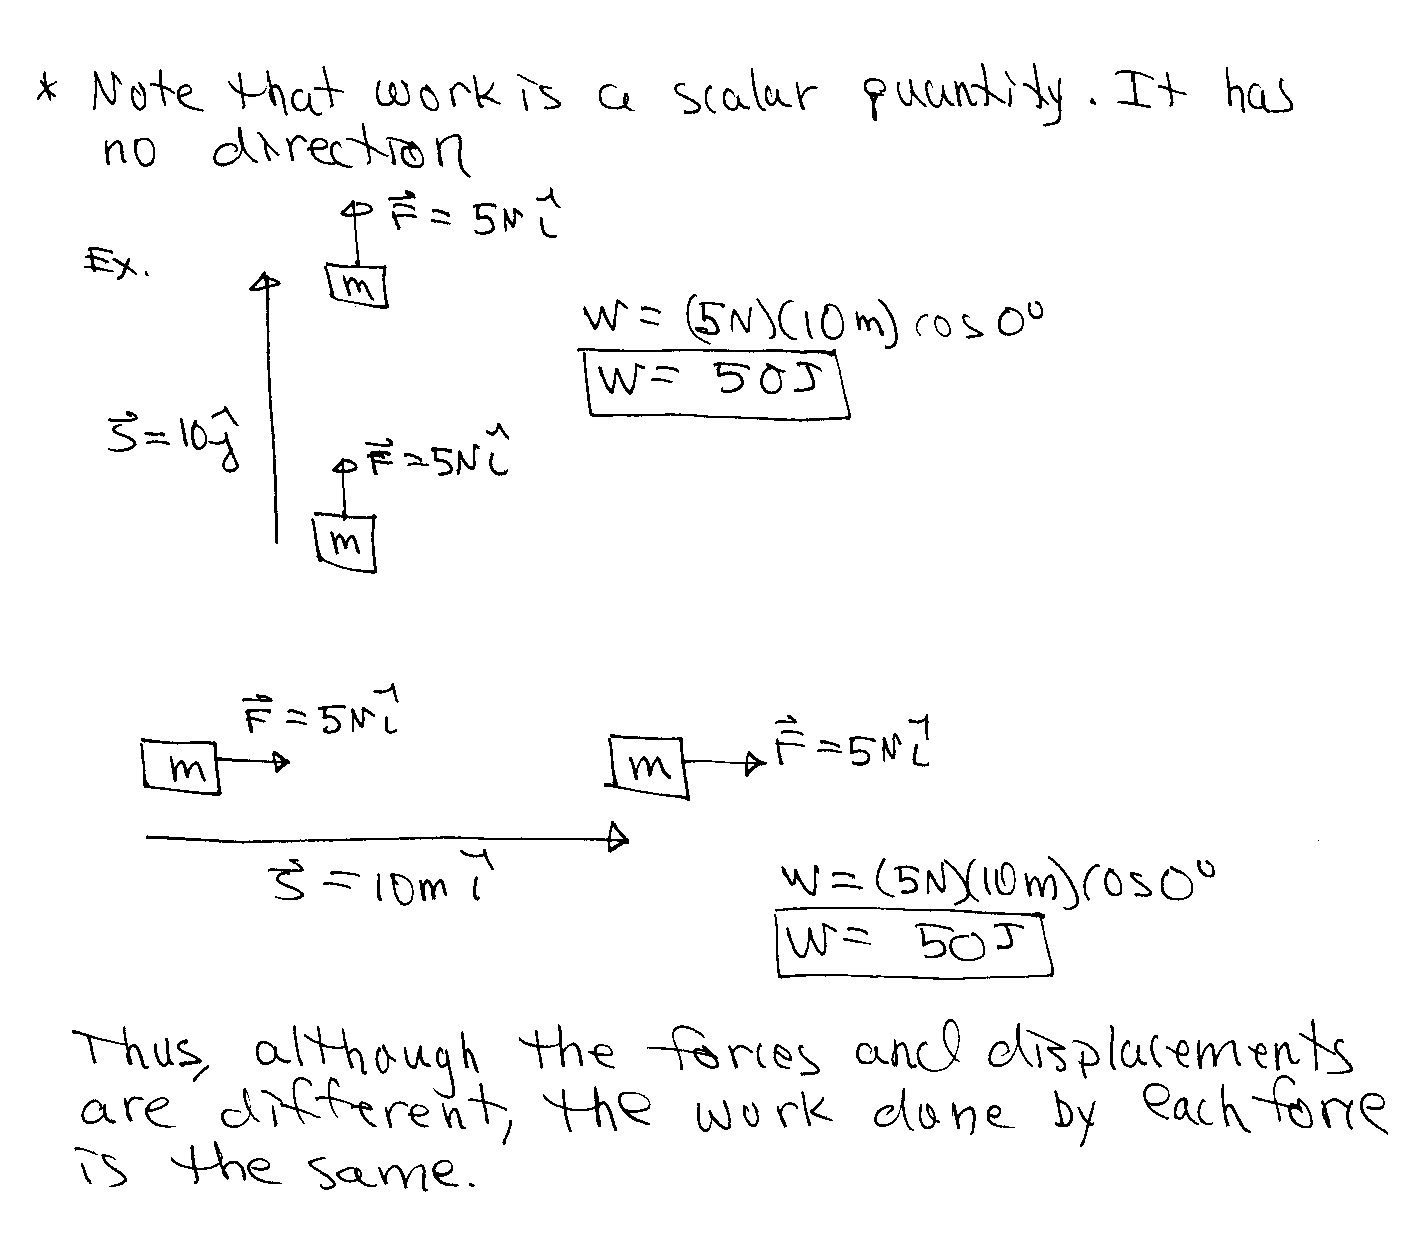 * Note that work is a scalar quantity. It has
no direction
F⃗ = 5N î
Ex.
m
W = (5N)(10m) cos 0°
W = 50J
S⃗ = 10ĵ
F⃗ = 5N î
m
F⃗ = 5N î
m
m
F⃗ = 5N î
S⃗ = 10m î
W = (5N)(10m) cos 0°
W = 50J
Thus, although the forces and displacements
are different, the work done by each force
is the same.